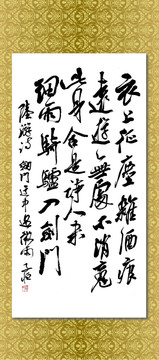 衣上征塵雜酒痕
遠遊無處不消魂
此身合是詩人未
細雨騎驢入劍門
陸游詩劍門道中遇微雨